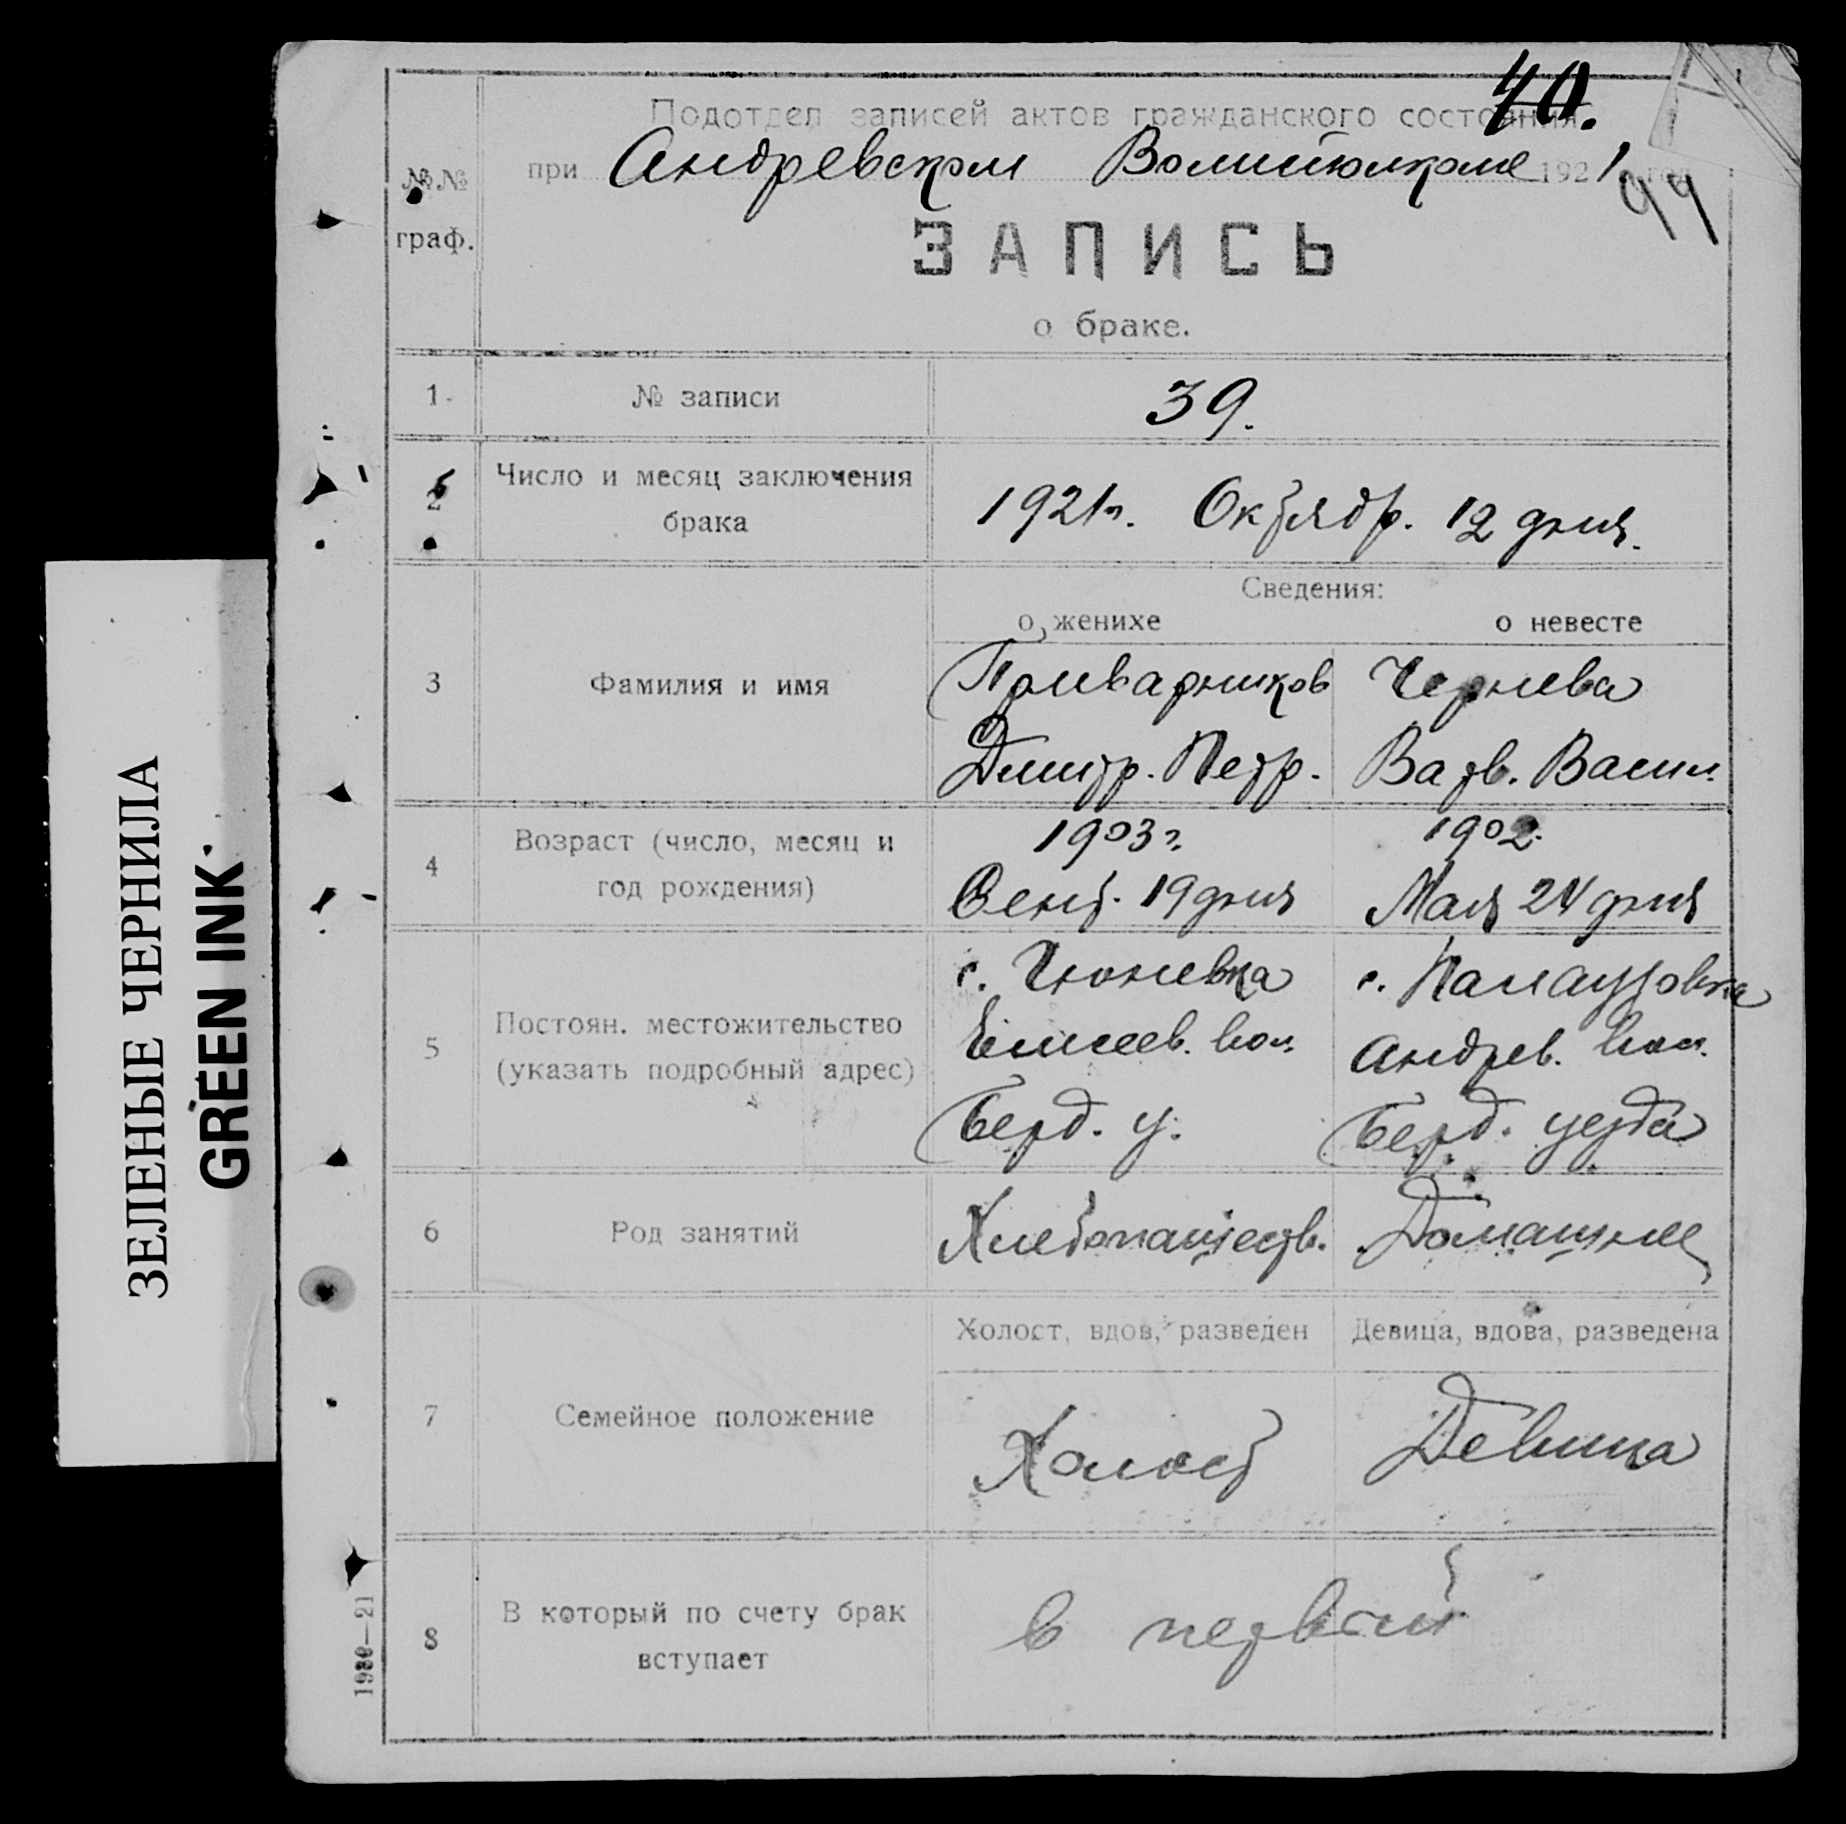 40.
Подотдел записей актов гражданского состояния
при Андревском Волисполкоме 1921 год
99
№№
граф.
ЗАПИСЬ
о браке.
1 № записи 39.
2 Число и месяц заключения
брака
1921 г. Октябр. 12 дня.
Сведения:
о женихе о невесте
3 Фамилия и имя
Поливарников Чернева
Дмитр. Петр. Васив. Васил.
4 Возраст (число, месяц и
год рождения)
1903 г. 1902.
Сент. 19 дня Мая 24 дня
5 Постоян. местожительство
(указать подробный адрес)
с. Гюневка с. Палаузовка
Елисеев. вол. Андрев. вол.
Берд. у. Берд. уезда
6 Род занятий
Хлебопашеств. Домашнее
Холост, вдов, разведен Девица, вдова, разведена
7 Семейное положение
Холост Девица
8 В который по счету брак
вступает
в первый
ЗЕЛЕНЫЕ ЧЕРНИЛА
GREEN INK